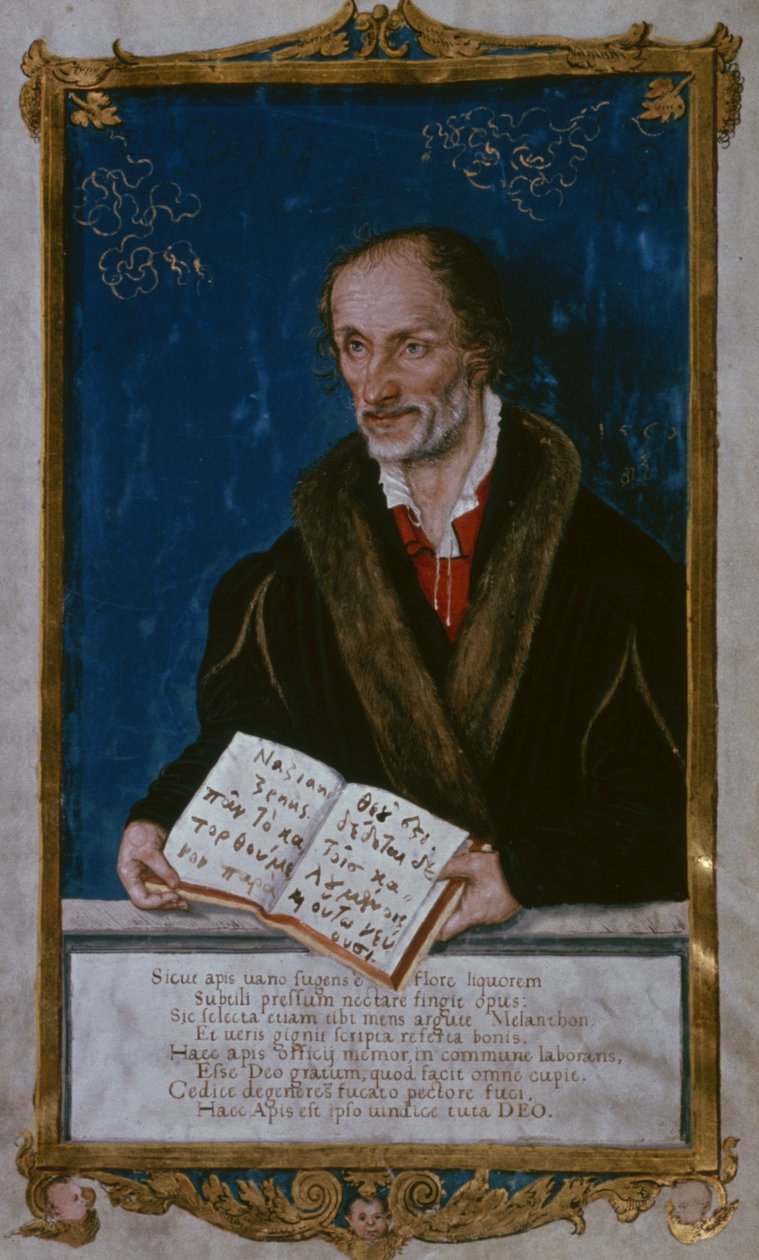 Ναζιαν
ζηνὸς.
πᾶν τὸ κα
τορθούμε
νον παρὰ
θεȣ̃ ἐϛι.
δέδοται δὲ
τοῖς κα-
λȣμένοις
ϗ οὕτω νεύ
ουσι.
Sicut apis uario ſugens e flore liquorem
Subtili preſſum nectare fingit opus:
Sic ſelecta etiam tibi mens argute Melanthon.
Et ueris gignit ſcripta referta bonis.
Haec apis officij memor, in commune laborans,
Eſſe Deo gratum, quod facit omne cupit.
Cedite degeneres fucato pectore fuci,
Haec Apis eſt ipſo uindice tuta DEO.